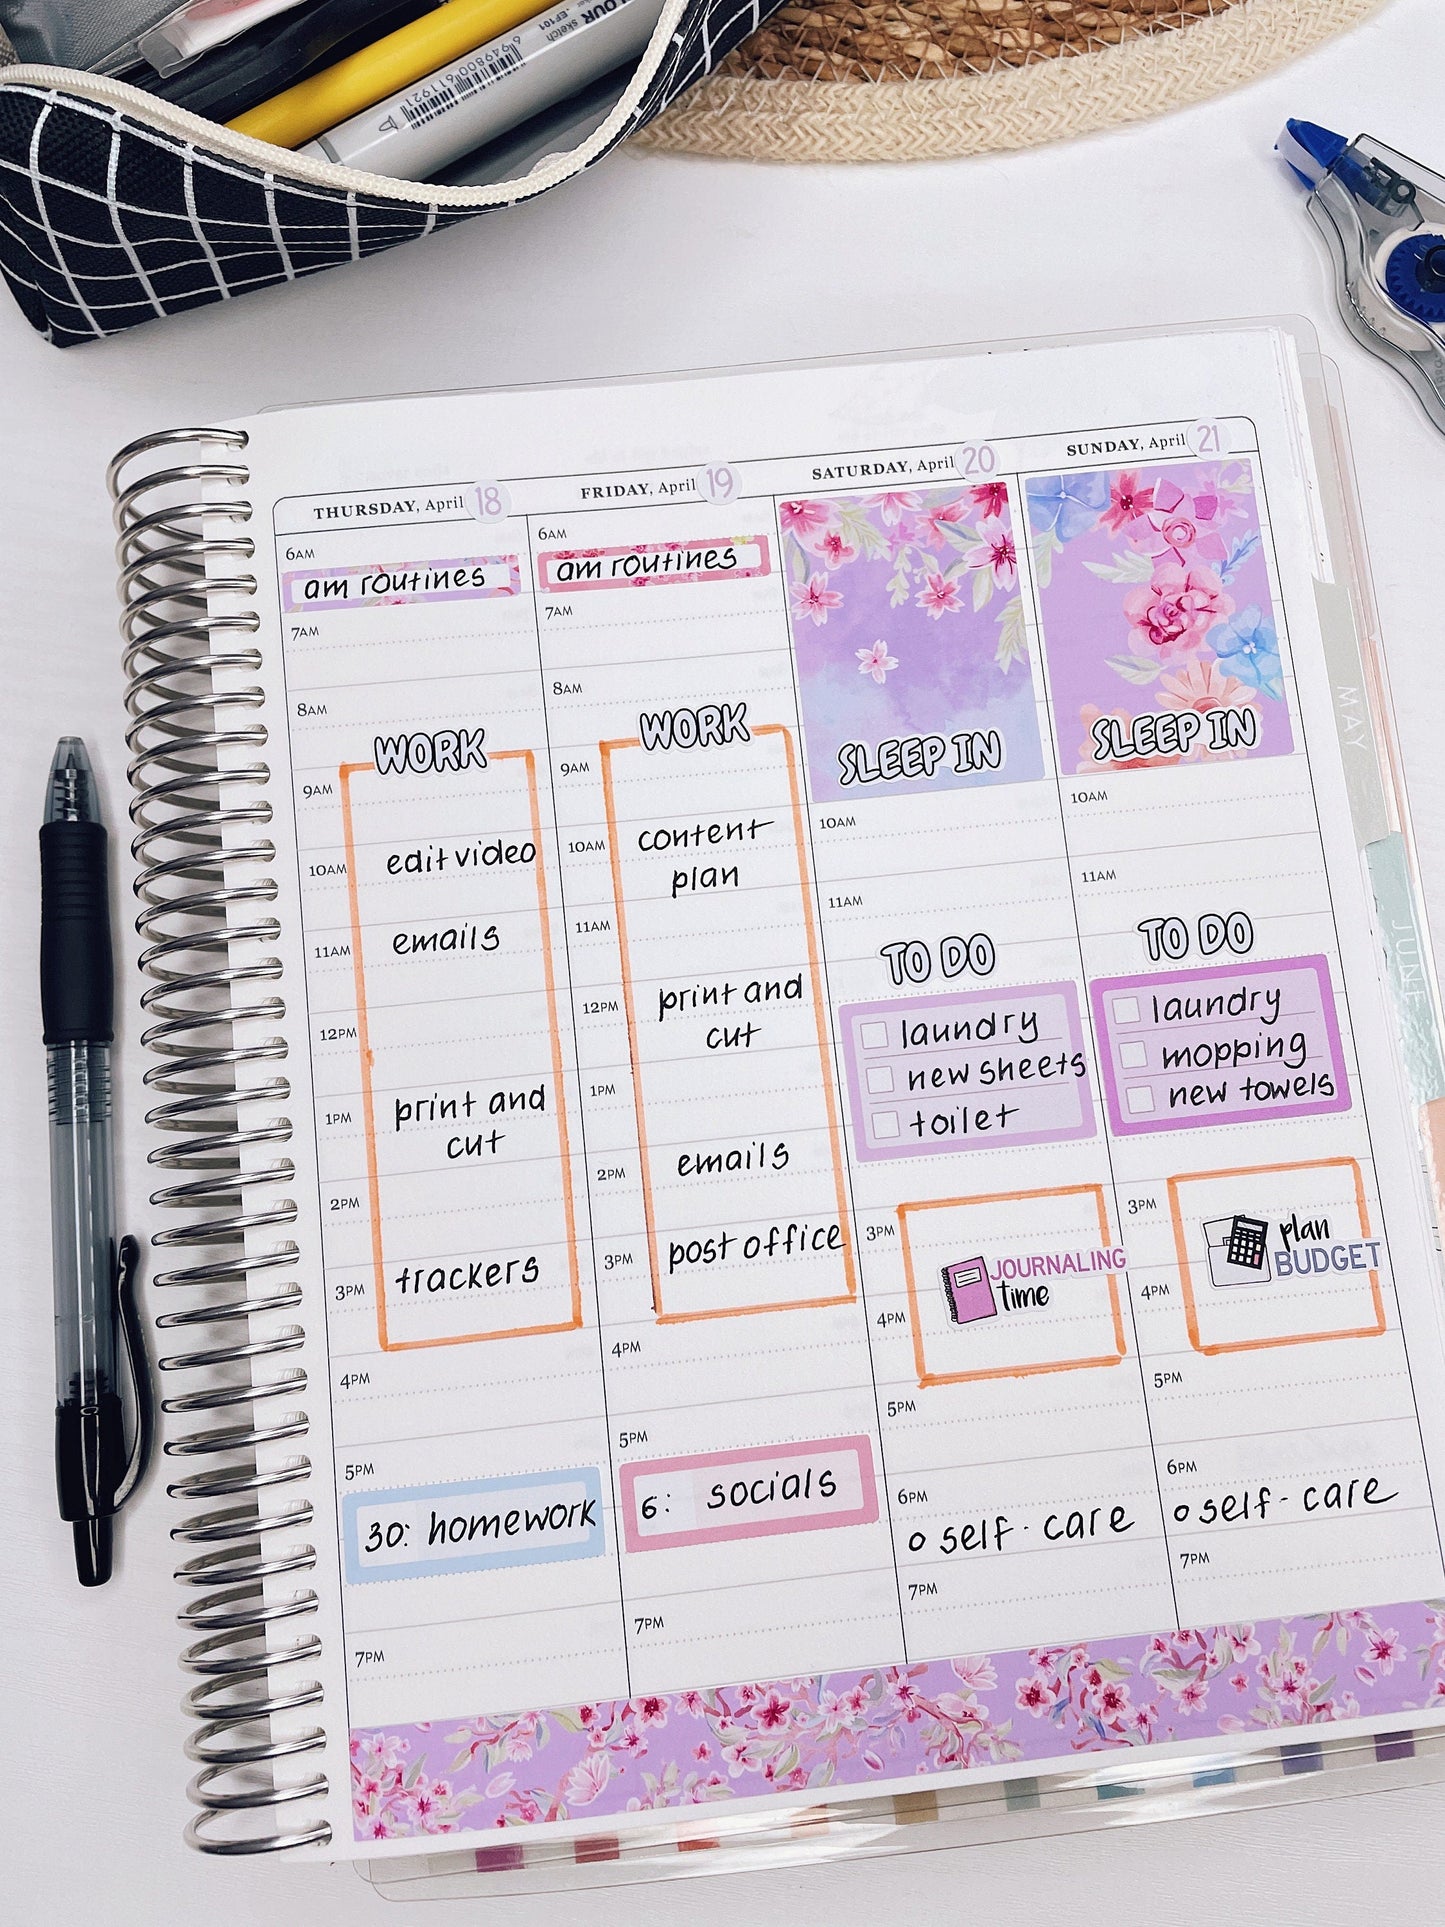 COLOUR sketch
.EF101
6949800611921
THURSDAY, April 18
6AM
am routines
7AM
8AM
WORK
9AM
10AM
edit video
11AM
emails
12PM
1PM
print and
cut
2PM
3PM
trackers
4PM
5PM
30: homework
7PM
FRIDAY, April 19
6AM
am routines
7AM
8AM
WORK
9AM
10AM
content
plan
11AM
12PM
print and
cut
1PM
2PM
emails
3PM
post office
4PM
5PM
6: socials
7PM
SATURDAY, April 20
SLEEP IN
10AM
11AM
TO DO
laundry
new sheets
toilet
3PM
JOURNALING
time
4PM
5PM
6PM
o self-care
7PM
SUNDAY, April 21
SLEEP IN
10AM
11AM
TO DO
laundry
mopping
new towels
3PM
plan
BUDGET
4PM
5PM
6PM
o self-care
7PM
MAY
JUNE